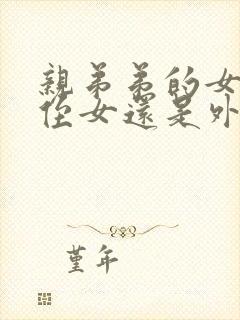 親弟弟的女
侄女還是外
堇年